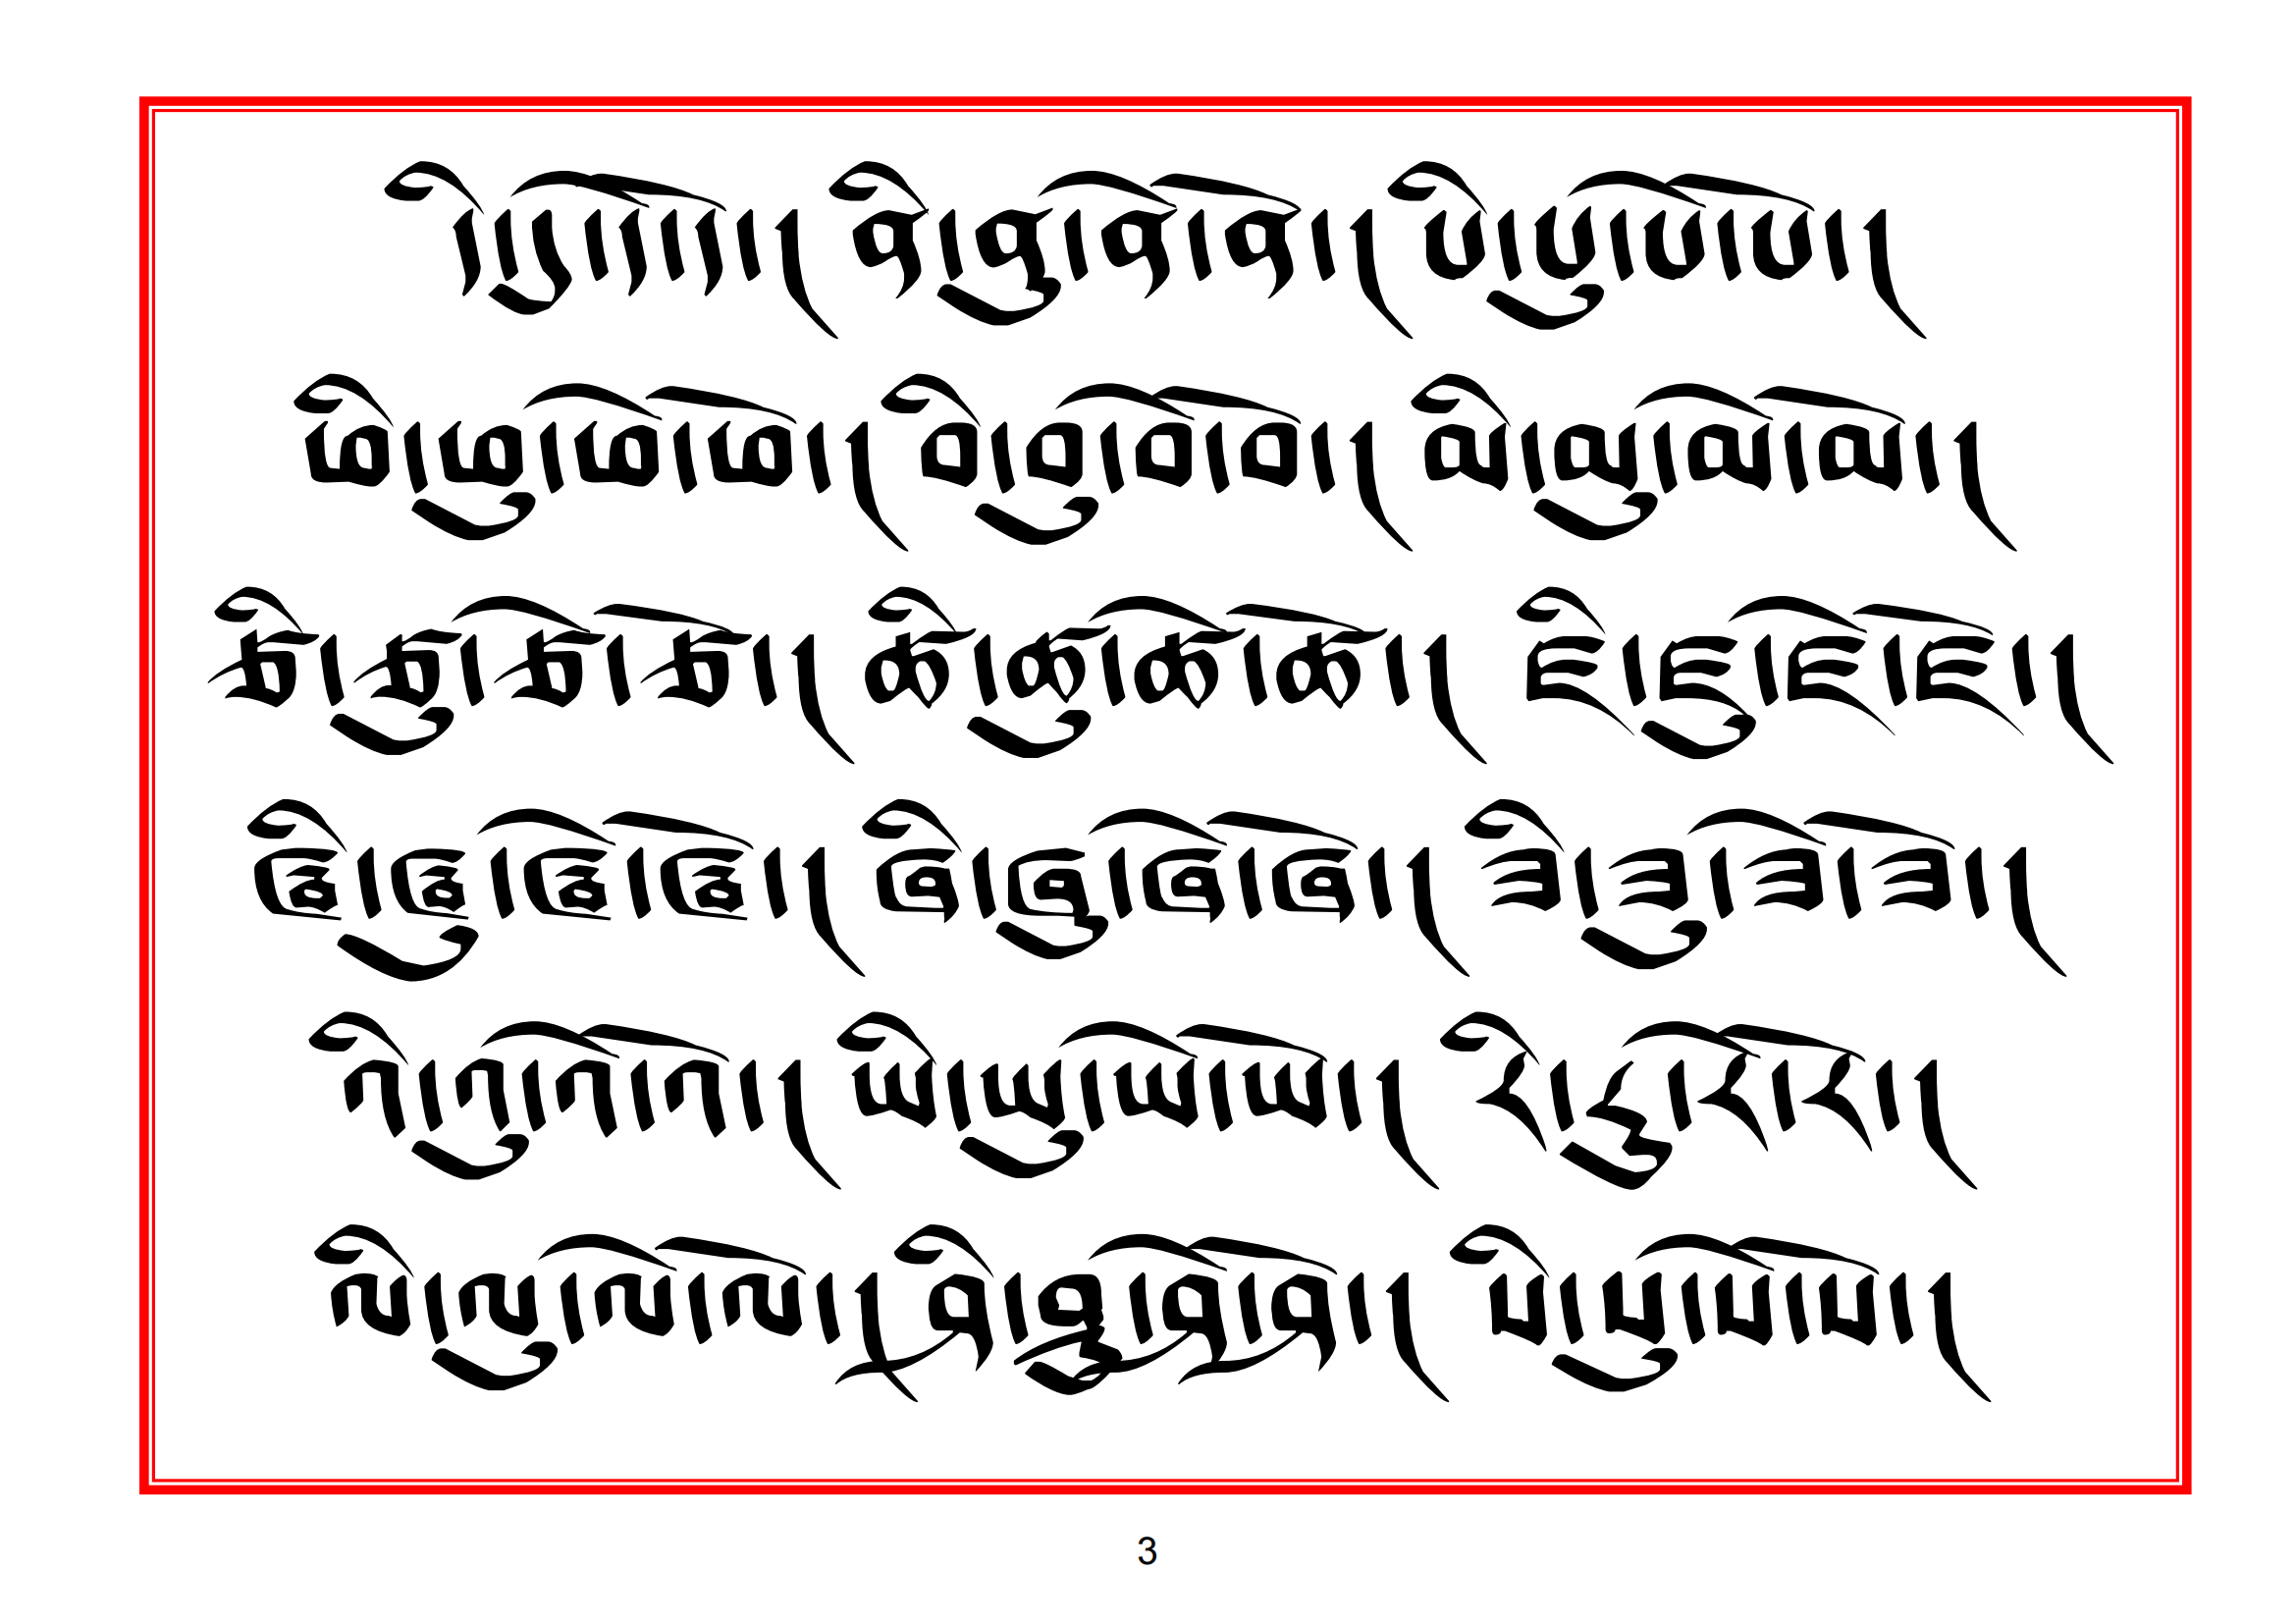 དི་དུ་དེ་དོ་། ནི་ནུ་ནེ་ནོ་། པི་པུ་པེ་པོ་།
ཕི་ཕུ་ཕེ་ཕོ་། བི་བུ་བེ་བོ་། མི་མུ་མེ་མོ་།
ཙི་ཙུ་ཙེ་ཙོ་། ཚི་ཚུ་ཚེ་ཚོ་། ཛི་ཛུ་ཛེ་ཛོ་།
ཝི་ཝུ་ཝེ་ཝོ་། ཞི་ཞུ་ཞེ་ཞོ་། ཟི་ཟུ་ཟེ་ཟོ་།
འི་འུ་འེ་འོ་། ཡི་ཡུ་ཡེ་ཡོ་། རི་རུ་རེ་རོ་།
ལི་ལུ་ལེ་ལོ་། ཤི་ཤུ་ཤེ་ཤོ་། སི་སུ་སེ་སོ་།
3